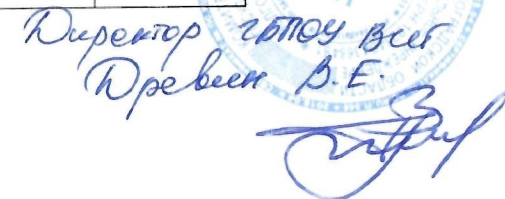 Директор ГБПОУ ВИТ
Древин В.Е.